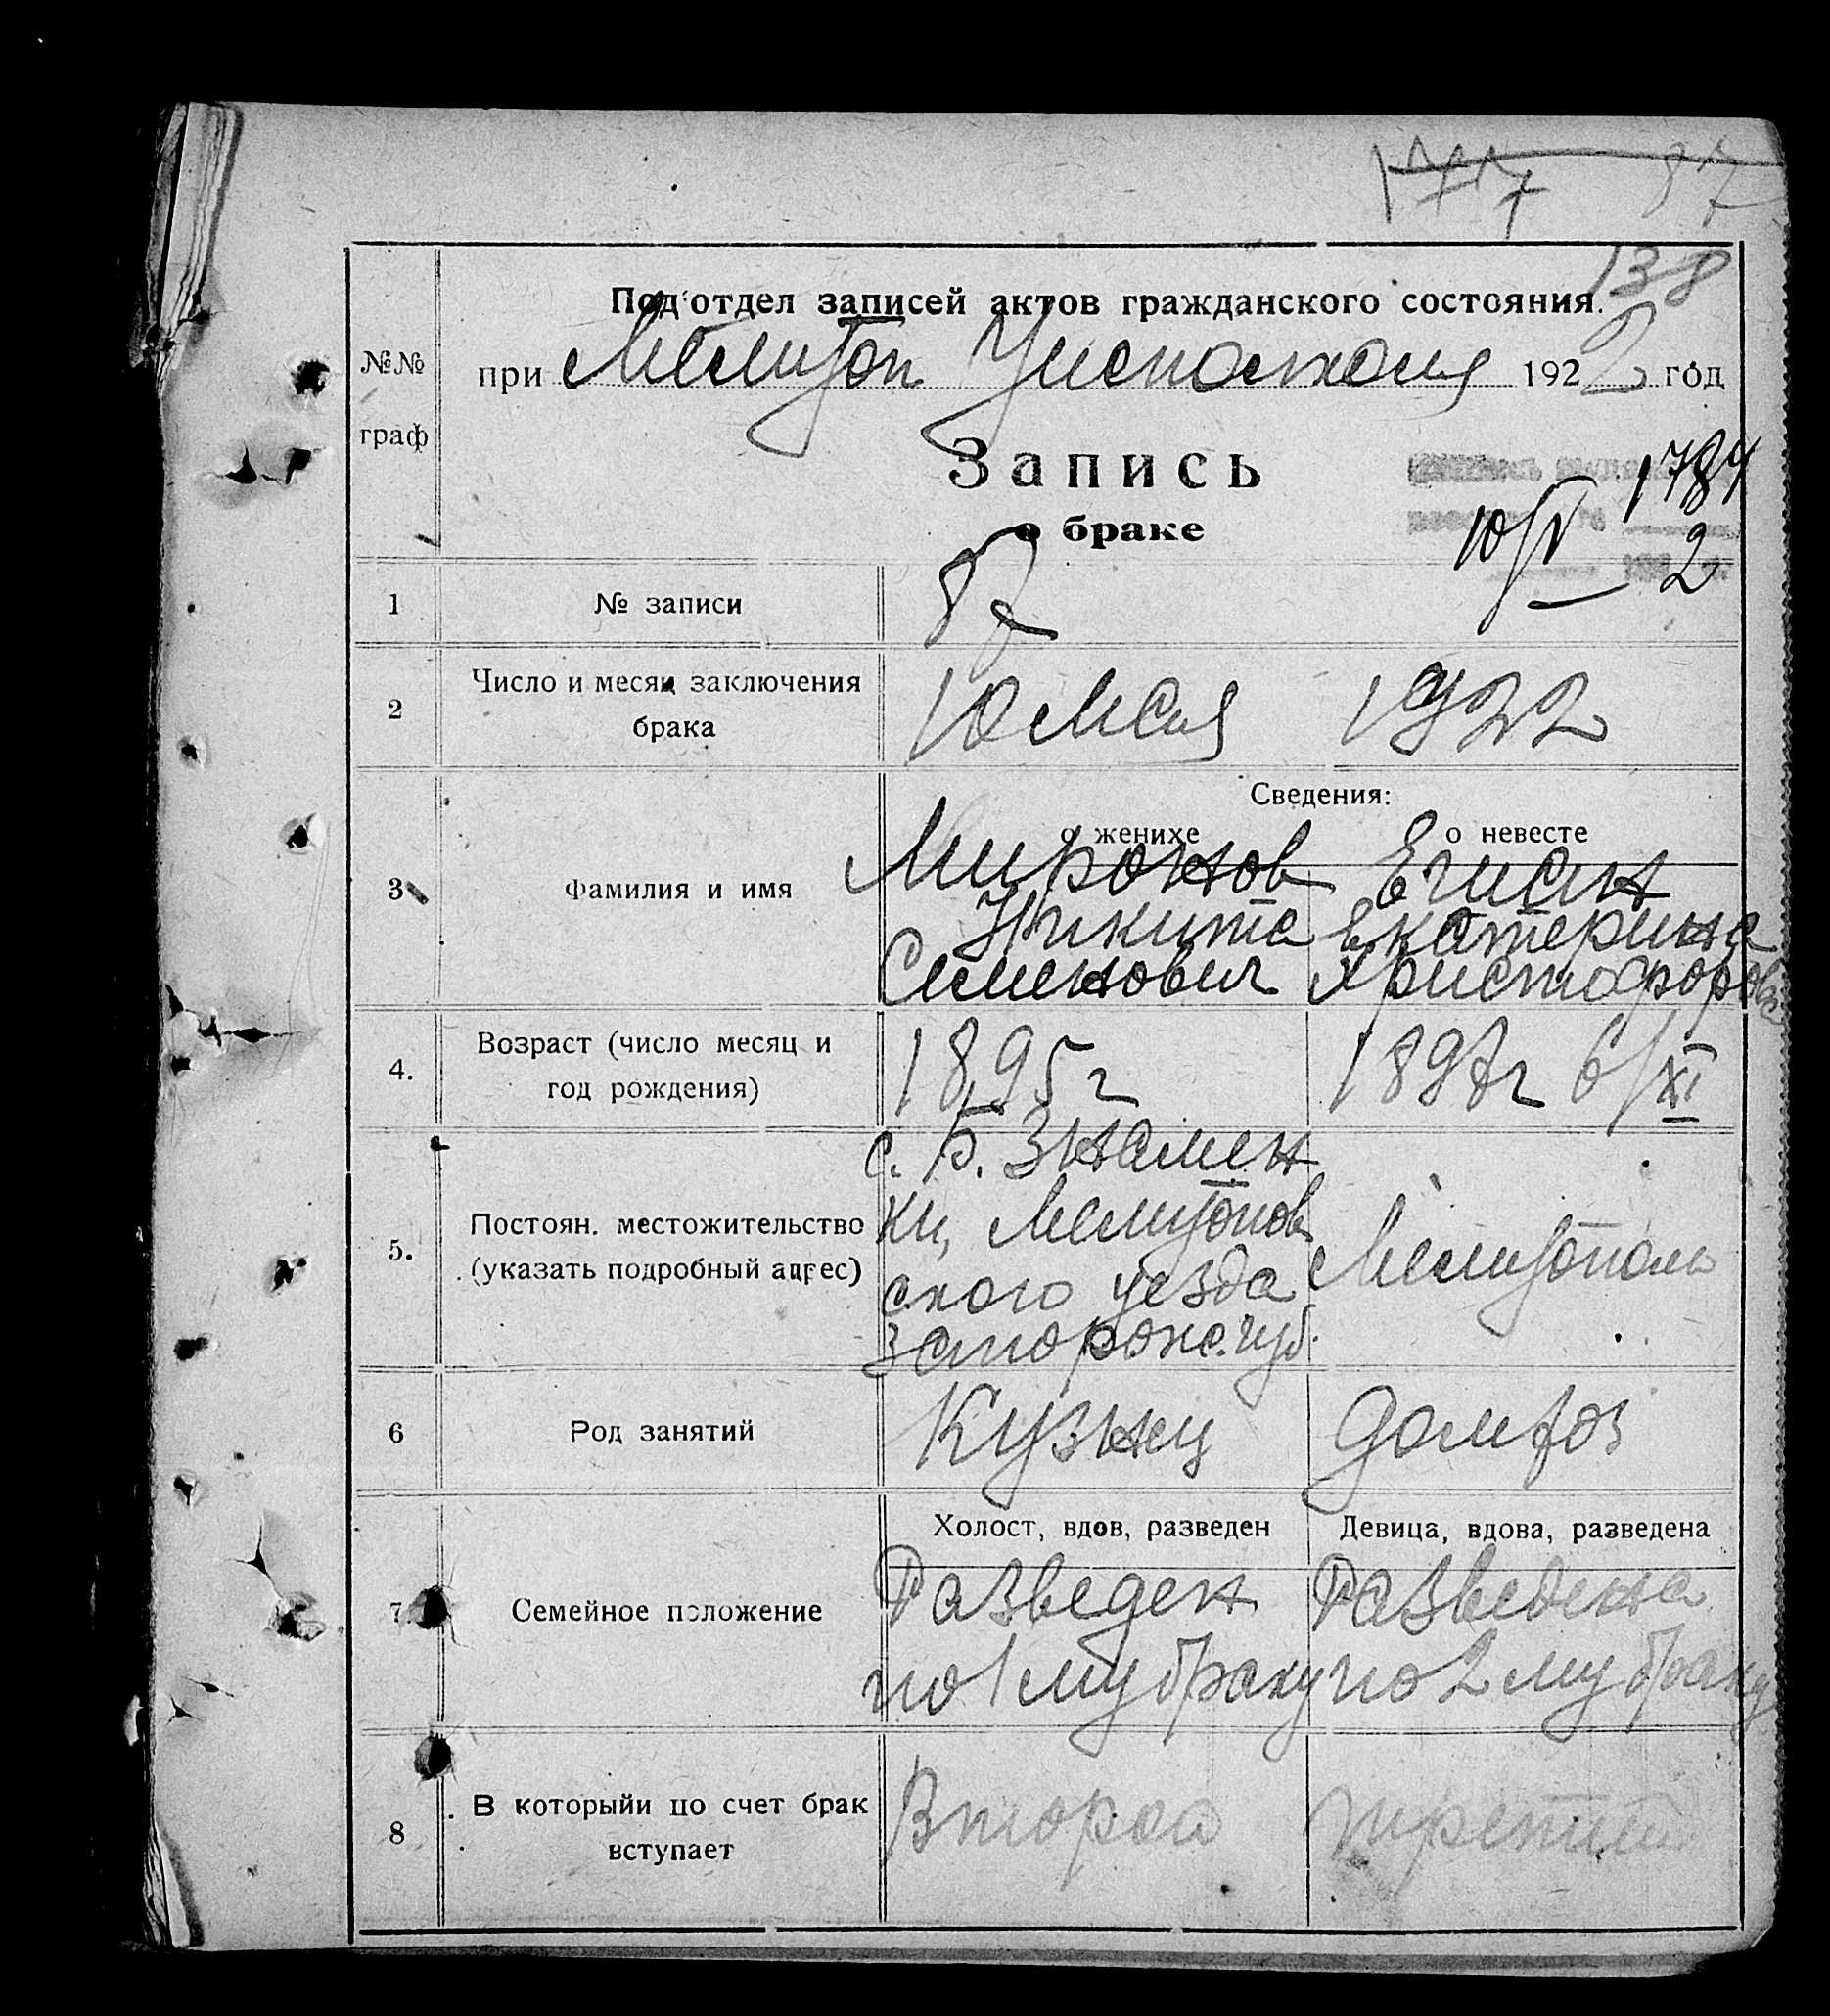 177 87
138
Подотдел записей актов гражданского состояния.
№№ граф
при Мелитоп Уисполкома 1922 год
Запись
о браке
1784
10/V 2
1 № записи 87
2 Число и месяц заключения брака 10 Мая 1922
Сведения:
о женихе о невесте
3 Фамилия и имя
Миронов Егисан
Никита Екатерина
Семенович Христофоровна
4. Возраст (число месяц и год рождения) 1895 г 1897 г 6/XI
5. Постоян. местожительство (указать подробный адрес)
с. Б. Знамен
ки, Мелитопов
ского уезда Мелитополь
Запорож. губ.
6 Род занятий Кузнец домхоз
Холост, вдов, разведен Девица, вдова, разведена
7 Семейное положение
Разведен Разведена
по 1 му браку по 2 му браку
8 В которыйи по счет брак вступает Второй третий